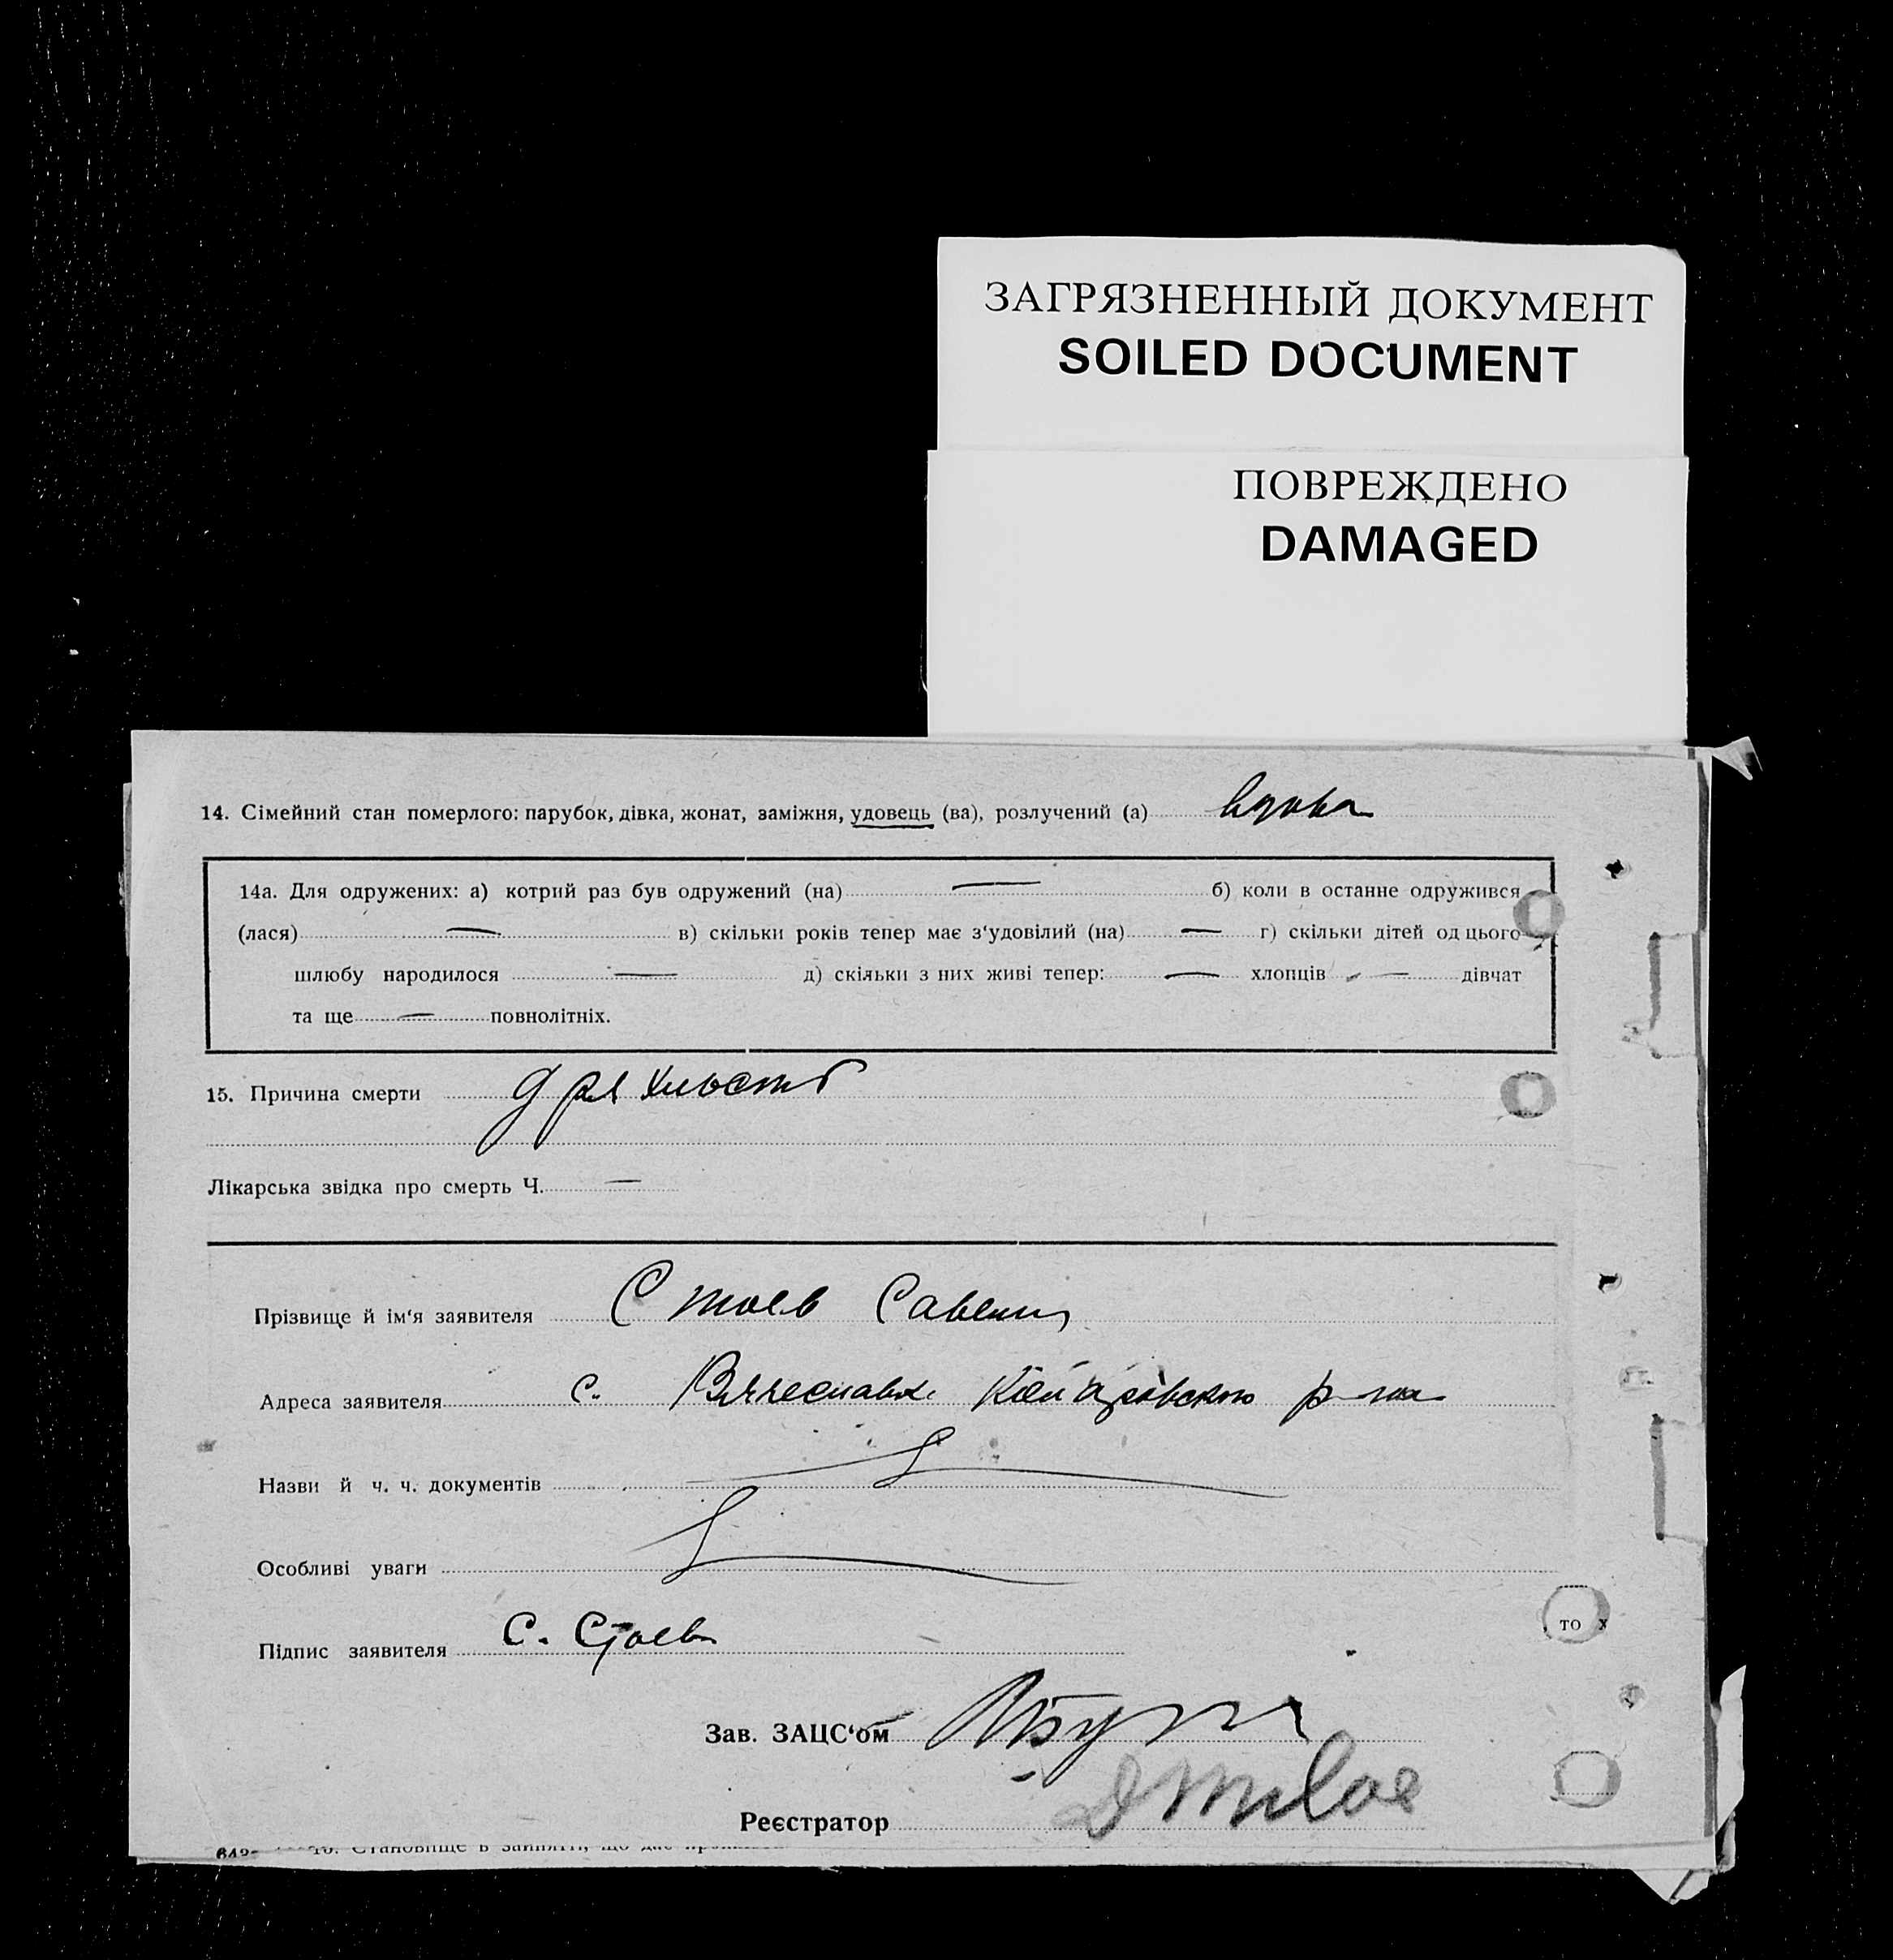 ЗАГРЯЗНЕННЫЙ ДОКУМЕНТ
SOILED DOCUMENT
ПОВРЕЖДЕНО
DAMAGED
14. Сімейний стан померлого: парубок, дівка, жонат, заміжня, удовець (ва), розлучений (а) вдова
14а. Для одружених: а) котрий раз був одружений (на) — б) коли в останне одружився
(лася) — в) скільки років тепер має з‘удовілий (на) — г) скільки дітей од цього
шлюбу народилося — д) скільки з них живі тепер: — хлопців — дівчат
та ще — повнолітніх.
15. Причина смерти дряхлость
Лікарська звідка про смерть Ч. —
Прізвище й ім‘я заявителя Стоев Савелий
Адреса заявителя с. Вячеславка р-на
Назви й ч. ч. документів
Особливі уваги
Підпис заявителя С. Стоев
то х
Зав. ЗАЦС‘ом
Реєстратор